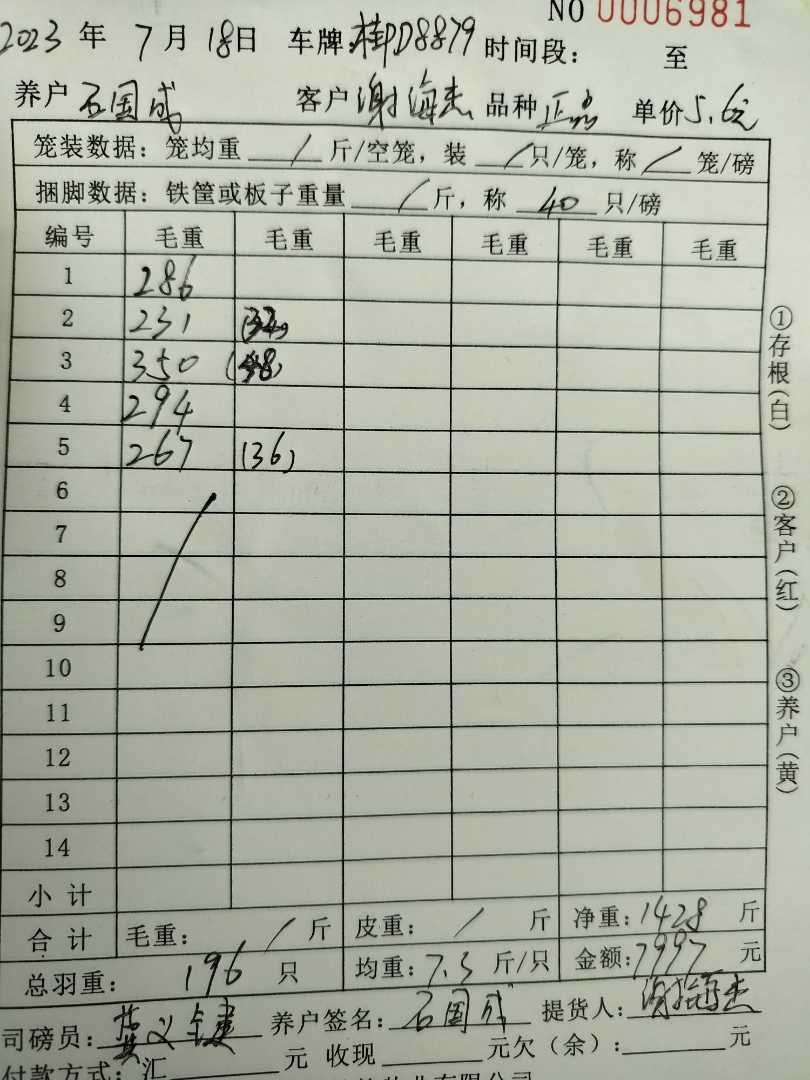 NO 0006981
2023 年 7 月 18日 车牌:桂PD8879 时间段: 至
养户 石国成 客户 谢海杰 品种 正品 单价 5.6元
笼装数据: 笼均重 / 斤/空笼, 装 / 只/笼, 称 / 笼/磅
捆脚数据: 铁筐或板子重量 / 斤, 称 40 只/磅
编号 毛重 毛重 毛重 毛重 毛重 毛重
1 286
2 231 (32)
3 350 (48)
4 294
5 267 (36)
6
7
8
9
10
11
12
13
14
小 计
合 计 毛重: / 斤 皮重: / 斤 净重: 1428 斤
总羽重: 196 只 均重: 7.3 斤/只 金额: 7997 元
司磅员: 黄义 养户签名: 石国成 提货人: 谢海杰
付款方式: 汇 元 收现 元欠(余): 元
业有限公司
①存根(白)
②客户(红)
③养户(黄)